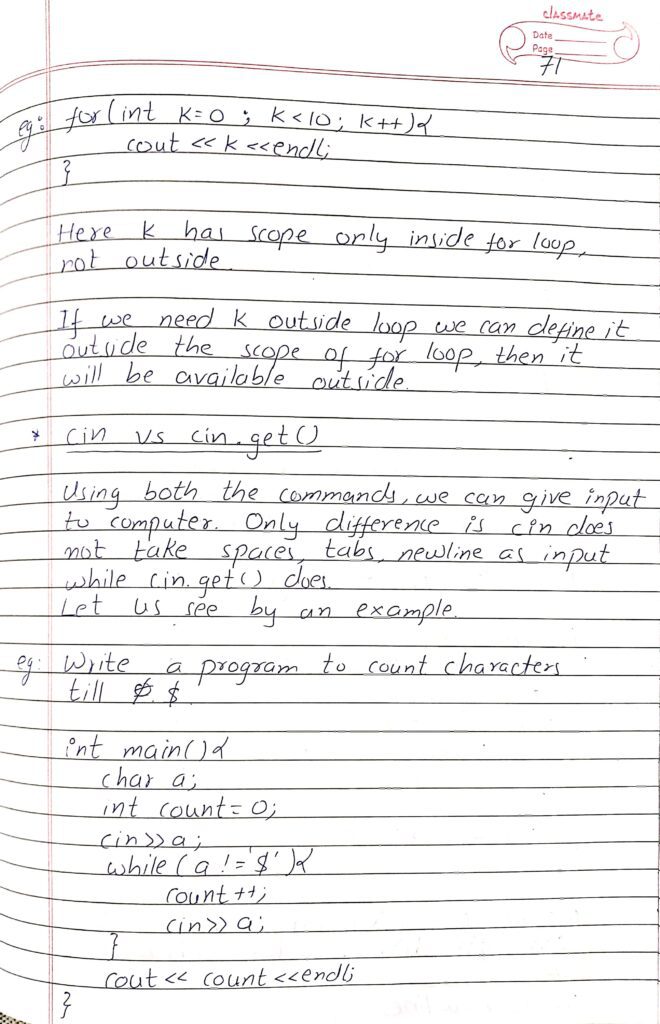 classmate
Date
Page
71
eg: for(int k=0 ; k<10; k++){
cout << k <<endl;
}
Here k has scope only inside for loop,
not outside.
If we need k outside loop we can define it
outside the scope of for loop, then it
will be available outside.
* cin vs cin.get()
Using both the commands, we can give input
to computer. Only difference is cin does
not take spaces, tabs, newline as input
while cin.get() does.
Let us see by an example.
eg: Write a program to count characters
till $. $
int main(){
char a;
int count=0;
cin>>a;
while (a != '$'){
count++;
cin>> a;
}
cout << count <<endl;
}